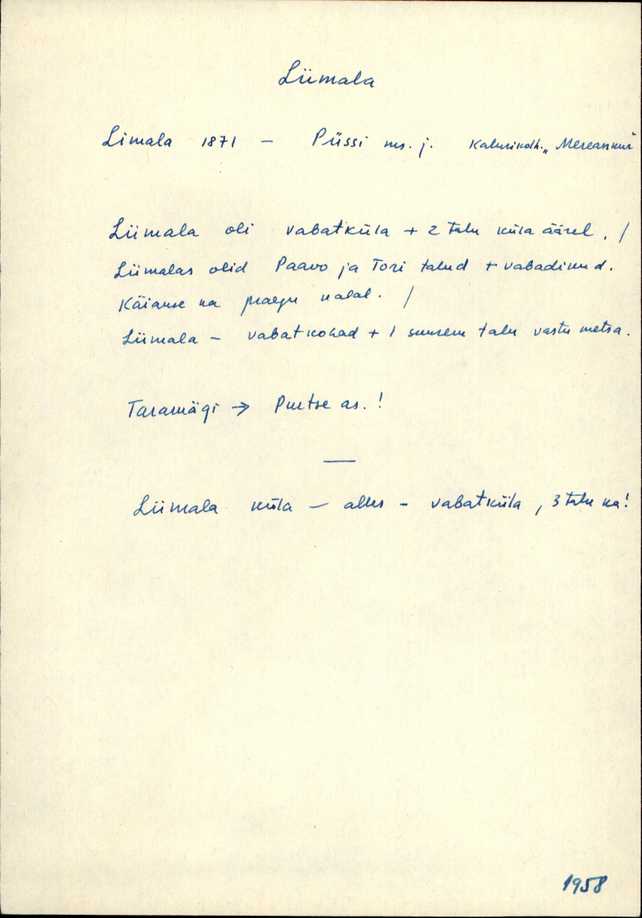 Liimala
Limala 1871 — Püssi ms. j. Kalurikolh. „Mereranna"
Liimala oli vabatküla + 2 talu küla äärel. /
Liimalas olid Paavo ja Tori talud + vabadikud.
Käiakse ka praegu kalal. /
Liimala — vabatkohad + 1 suurem talu vastu metsa.
Taramägi → Purtse as.!
—
Liimala küla — alles - vabatküla, 3 talu ka!
1958